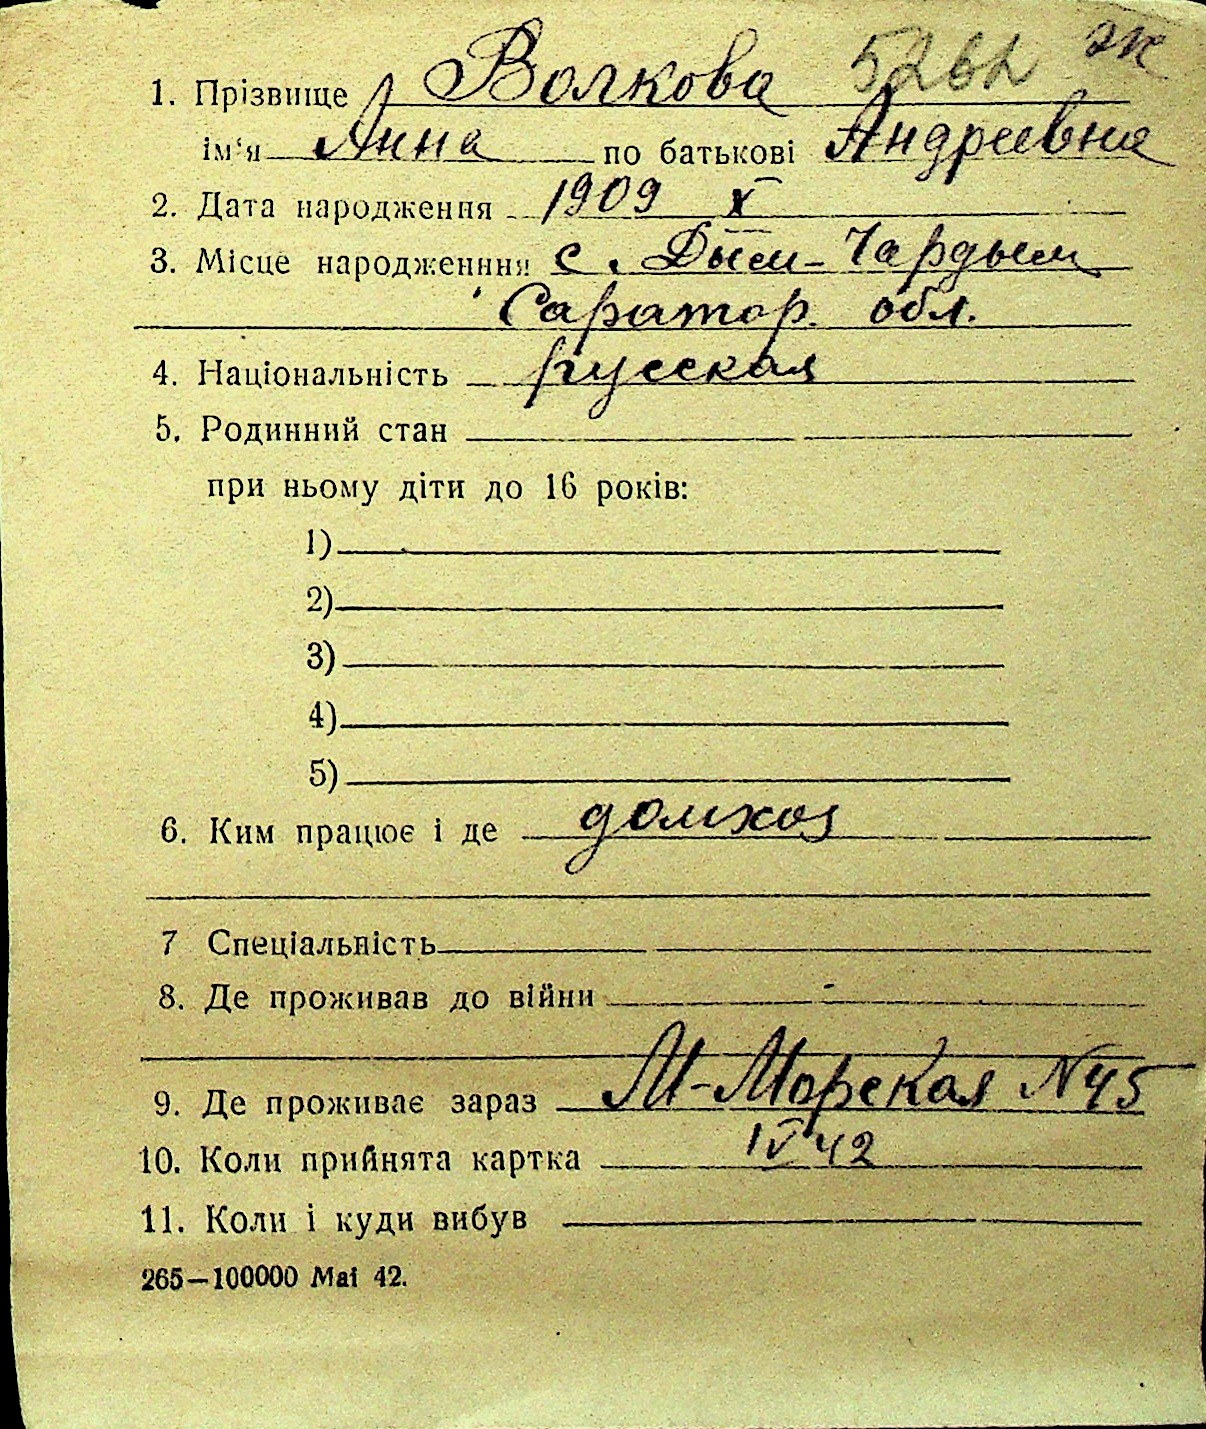 1. Прізвище Волкова 5262 эк
ім'я Анна по батькові Андреевна
2. Дата народження 1909 X
3. Місце народженння с. Дым-Чардым
Саратор. обл.
4. Національність русская
5. Родинний стан
при ньому діти до 16 років:
1)
2)
3)
4)
5)
6. Ким працює і де домхоз
7 Спеціальність
8. Де проживав до війни
9. Де проживає зараз М-Морская N 45
10. Коли прийнята картка IV 42
11. Коли і куди вибув
265—100000 Mai 42.